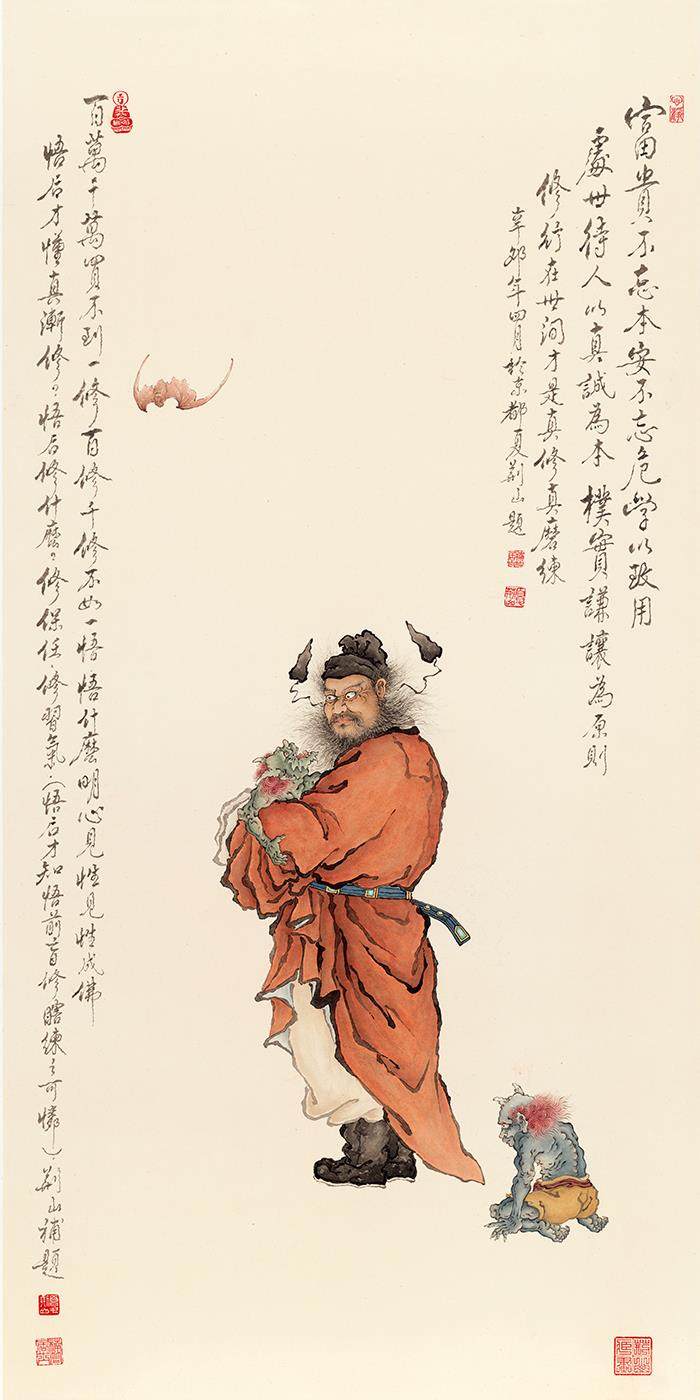 富貴不忘本安不忘危學以致用
處世待人以真誠為本樸實謙讓為原則
修行在世间才是真修真磨練
辛卯年四月於京都夏荊山題
百萬千萬買不到一修百修千修不如一悟悟什麼明心見性見性成佛
悟后才懂真漸修悟后修什麼修保任修習氣（悟后才知悟前盲修瞎練之可憐）荊山補題